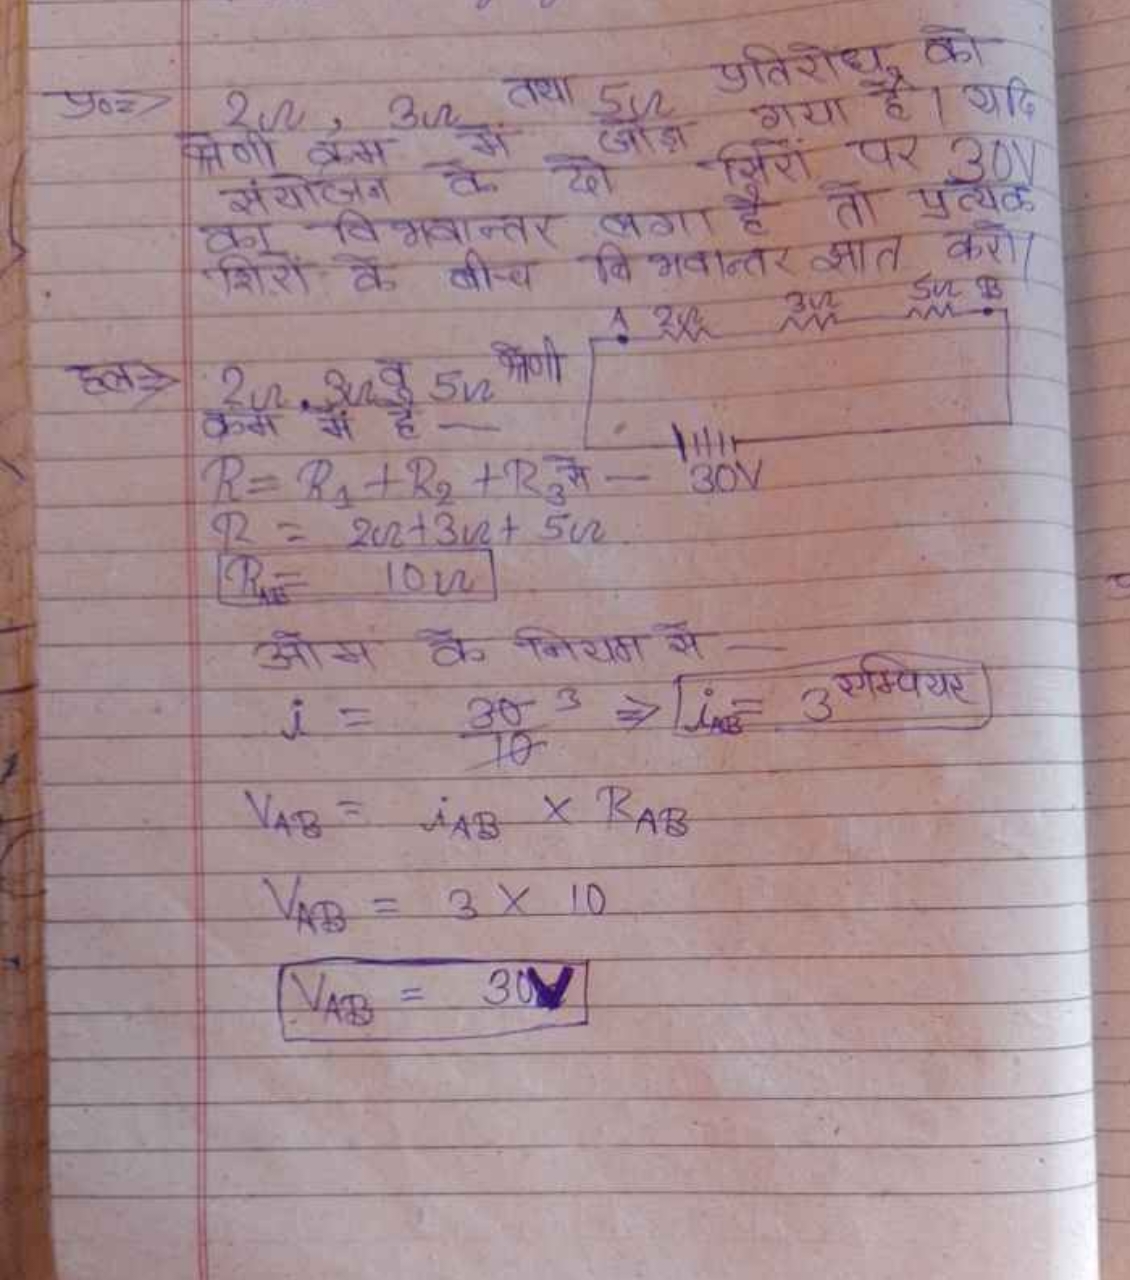 प्र०⇒ 2Ω, 3Ω तथा 5Ω प्रतिरोध को
श्रेणी क्रम में जोड़ा गया है। यदि
संयोजन के दो सिरों पर 30V
का विभवान्तर लगा है तो प्रत्येक
शिरों के बीच विभवान्तर ज्ञात करो।
A 2Ω 3Ω 5Ω B
हल⇒ 2Ω, 3Ω व 5Ω श्रेणी
क्रम में है —
R = R1 + R2 + R3 से —
30V
R = 2Ω+3Ω+ 5Ω
RAB = 10Ω
ओम के नियम से —
i = 30/10 3 ⇒ iAB = 3 एम्पियर
VAB = iAB × RAB
VAB = 3 × 10
VAB = 30V